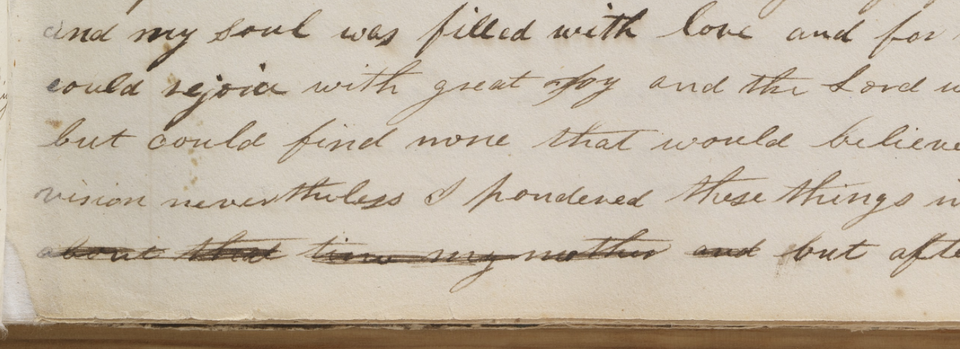 and my soul was filled with love and for
could rejoice with great Joy and the Lord w
but could find none that would believe
vision nevertheless I pondered these things in
about that time my mother and but afte